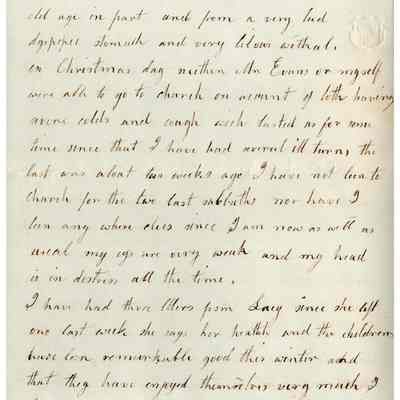 old age in part and from a very bad
dyspepic stomach and very bilous withal.
on Christmas day neither Mr Evans or myself
were able to go to church on account of both having
severe colds and cough wich lasted us for some
time since that I have had several ill turns, the
last was about two weeks ago I have not been to
church for the two last sabbuths nor have I
been any where elces since I am now as well as
useal my eys are very weak and my head
is in distress all the time.
I have had three letters from Lucy since she left
one last week she says her health and the childrens
have been remarkable good this winter and
that they have enjoyed themselvs very much I